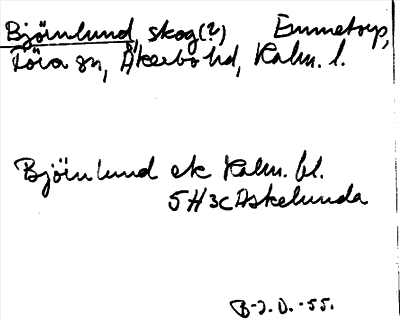 Björnlund, skog(?) Emmetorp,
Föra sn, Åkerbo hd, Kalm. l.
Björnlund ek Kalm. bl.
5H 3c Askelunda
B-J.D. -55.